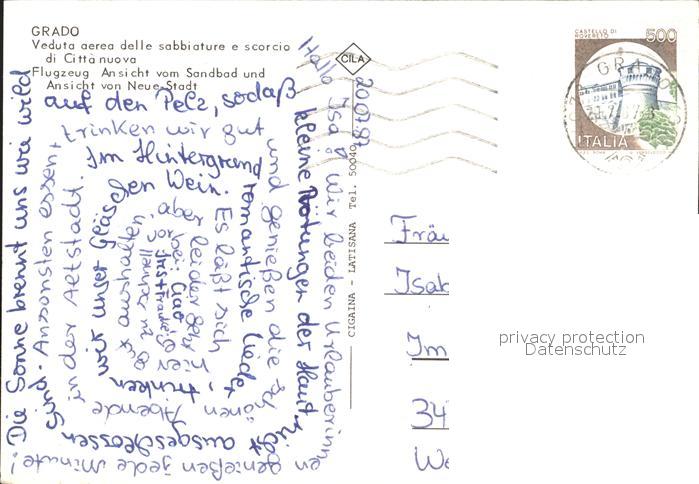 GRADO
Veduta aerea delle sabbiature e scorcio
di Città nuova
Flugzeug Ansicht vom Sandbad und
Ansicht von Neue Stadt
CILA
20.07.92
Hallo Isa! Wir beiden Urlauberinnen
genießen jede Minute!
Die Sonne brennt uns wie wild
auf den Pelz, sodaß
kleine Rötungen der Haut
nicht ausgeschlossen
sind. Ansonsten essen +
trinken wir gut
und genießen die schönen
Abende
in der Altstadt.
Im Hintergrund
romantische Lieder,
trinken
wir unser Gläschen Wein.
Es läßt sich
hier
aushalten,
aber leider geht
vorbei: Ciao
CIGAINA - LATISANA Tel. 50040
CASTELLO DI
ROVERETO
500
ITALIA
GRADO
Fräu
Isab
Im
34
We
privacy protection
Datenschutz